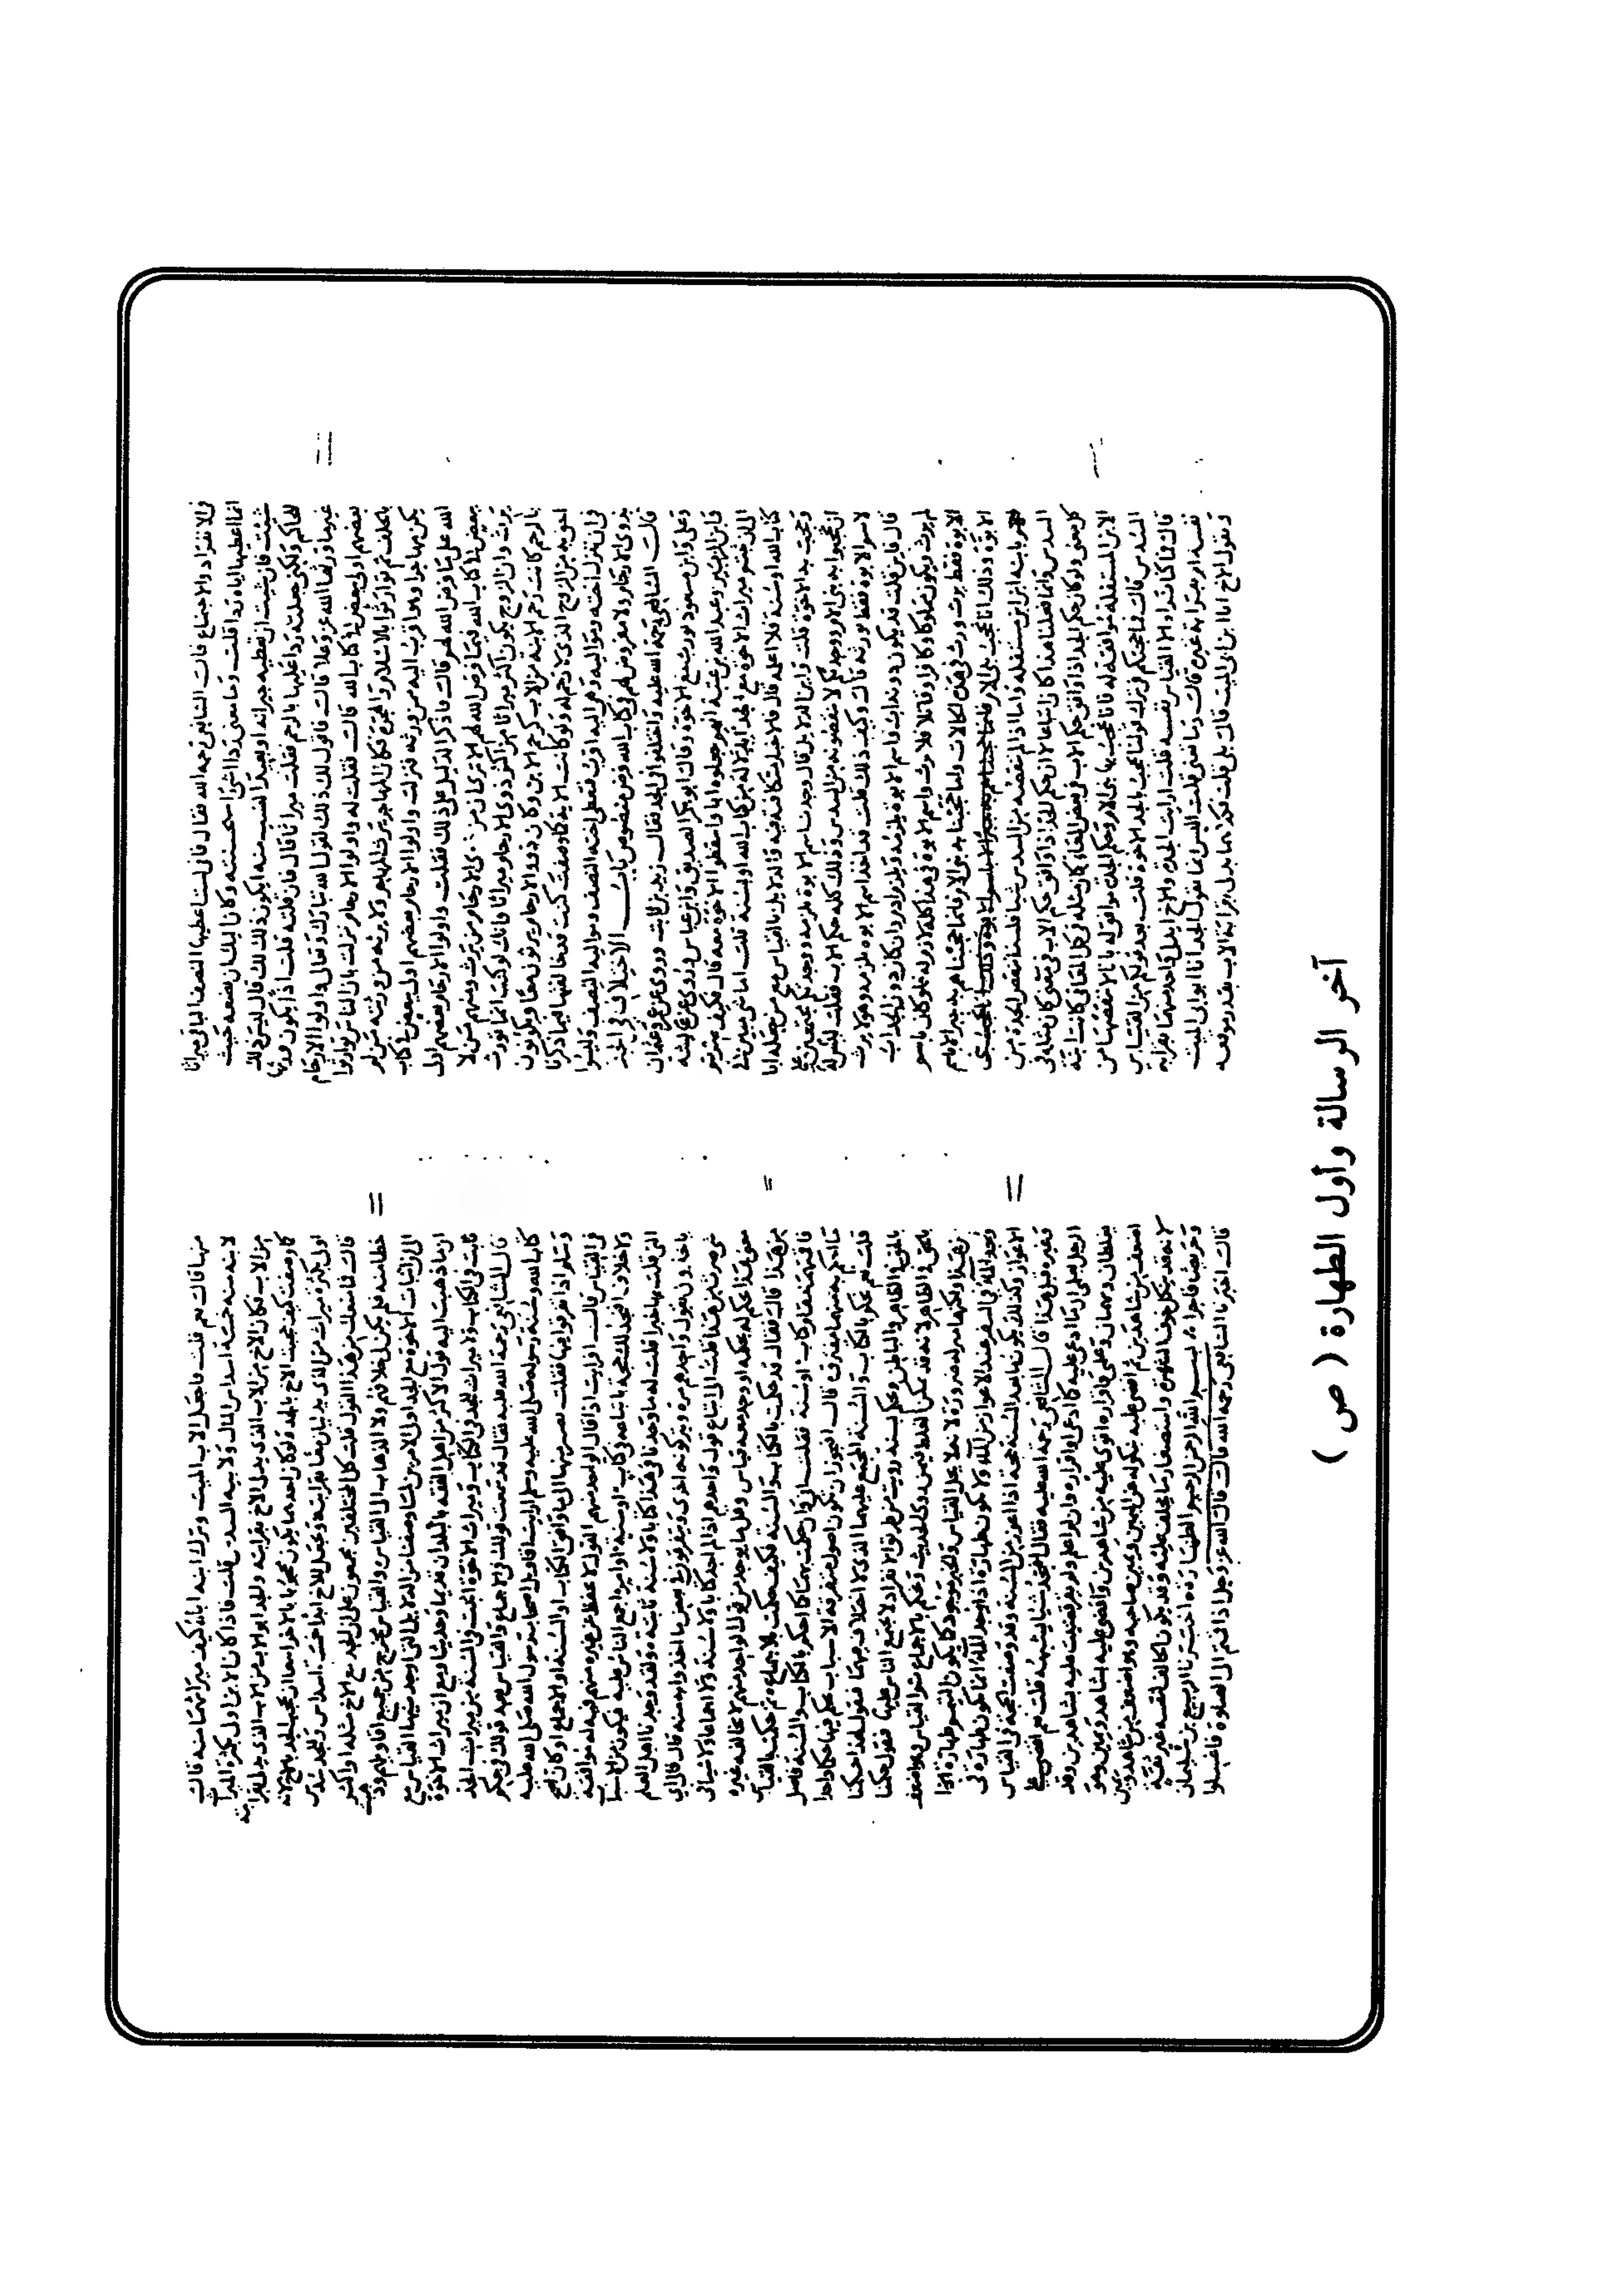 في الانفراد والاجتماع قال الشافعي رحمه الله فقال فاني لست اعطيها النصف الباقي ميراثا
انما اعطيها اياه ردا قلت وما معنى ردا اشيا استحسنته وكان اليك ان تضعه حيث
شئت فان شئت ان تعطيه جيرانه او بعيد النسب منه ايكون ذلك لك قال ليس ذلك
للحاكم ولكني جعلته ردا عليها بالرحم فقلت ميراثا قال فان قلته قلت اذا يكون ورثتها
غير ما ورثها الله عز وعلا قال فاقول لك ذلك لقول الله تبارك وتعالى واولوا الارحام
بعضهم اولى ببعض في كتاب الله قال فقلت له واولوا الارحام نزلت بان الناس توارثوا
بالحلف ثم توارثوا بالاسلام والهجرة فكان المهاجر يرث المهاجر ولا يرثه من ورثته من لم
يكن مهاجرا وهو اقرب اليه من ورثه فنزلت واولوا الارحام بعضهم اولى ببعض في كتاب
الله على ما فرض الله لهم قال فاذكر الدليل على ذلك فقلت واولوا الارحام بعضهم اولى
ببعض في كتاب الله فيما فرض الله لهم الا ترى ان من ذوي الارحام من يرث ومنهم من لا
يرث وان الزوج يكون اكثر ميراثا من اكثر ذوي الارحام ميراثا وانك لو كنت انما تورث
بالرحم كانت رحم الابنة من الاب كرحم الابن وكان ذووا الارحام يرثون معا ويكونون
احق به من الزوج الذي لا رحم له ولو كانت الاية كما وصفت كنت قد خالفتها فيما ذكرنا
في ان تترك اخته ومواليه وهم اليه اقرب فتعطي اخته النصف ومواليه النصف وليسوا
بذوي الارحام ولا مفروض لهم في كتاب الله فرض منصوص باب الاختلاف في الجد
قال الشافعي رحمة الله عليه واختلفوا في الجد فقال زيد بن ثابت وروي عن عمر وعثمان
وعلي وابن مسعود يورث مع الاخوة وقال ابو بكر الصديق وابن عباس وروي عن عائشة
وابن الزبير وعبد الله بن عتبة انهم جعلوه ابا واسقطوا الاخوة معه قال فكيف صرتم
الى ان ثبتم ميراث الاخوة مع الجد ابدلالة من كتاب الله او سنة قلت اما شي مبين في
كتاب الله او سنة فلا اعلمه قال فالاخبار متكافية فيه والدلايل بالقياس مع من جعله ابا
وحجب به الاخوة قلت واين الدلايل قال وجدت اسم الابوة يلزمه ووجدتكم مجتمعين على
ان تحجبوا به بني الام ووجدتكم لا تنقصونه من السدس وذلك كله حكم الاب فقلت ليس له
لاسم الابوة فقط نورثه قال وكيف ذلك قلت قد اجد اسم الابوة يلزمه وهو لا يرث
قال فاين قلت قد يكون دونه اب واسم الابوة يلزمه ويلزم ادم واذا كان دون الجد اب
لم يرث ويكون مملوكا وكافرا وقاتلا فلا يرث واسم الابوة في هذا كله لازم له فلو كان باسم
الابوة فقط يورث ورث في هذه الحالات واما حجبنا به بني الام فانما حجبناهم به خبرا لا باسم
الابوة وذلك انا نحجب بني الام
بابنة ابن ابن متسفلة واما انا لم ننقصه من السدس فلسنا ننقص الجدة من
السدس وانما فعلنا هذا كله اتباعا لا ان حكم الجد اذا وافق حكم الاب في معنى كان مثله في
كل معنى ولو كان حكم الجد اذا وافق حكم الاب في بعض المعاني كان مثله في كل المعاني كانت ابنة
الابن المتسفلة موافقة له فانا نحجب بها بني الام وحكم الجدة موافق له بانا لا ننقصها من
السدس قال فما حجتكم في ترك قولنا نحجب بالجد الاخوة قلت بعد قولكم من القياس
قال فما كنا نراه الا القياس نفسه قلت ارايت الجد والاخ ايدلي واحد منهما بقرابة
نفسه ام بقرابة غيره قال وما تعني قلت اليس انما يقول الجد انا ابو ابي الميت
ويقول الاخ انا ابن ابي الميت قال بلى قلت فكلاهما يدلي بقرابة الاب بقدر موقعه
منها قال نعم قلت فاجعل الاب الميت وترك ابنه اباه كيف ميراثهما منه قال
لابنه منه خمسة اسداس المال ولابيه السدس قلت فاذا كان الابن اولى بكثرة الميراث
من الاب وكان الاخ من الاب الذي يدلي الاخ بقرابته والجد ابو الاب من الاب الذي يدلي بقرابته
كما وصفت كيف حجبت الاخ بالجد ولو كان احدهما يكون محجوبا بالاخر انبغى ان يحجب الجد بالاخ لانه
اولى بكثرة ميراث من الذي يدليان معا بقرابته وتجعل للاخ ابدا خمسة اسداس وللجد سدس
قال فما منعك من هذا القول قلت كل المختلفين مجمعون على ان الجد مع الاخ مثله او اكثر
حظا منه فلم يكن لي خلافهم ولا الذهاب الى القياس والقياس مخرج من جميع اقاويلهم وذهبت
الى اثبات الاخوة مع الجد اولى الامرين لما وصفنا من الدلايل التي اوجدنيها القياس مع
ان ما ذهبت اليه قول الاكثر من اهل الفقه بالبلدان قديما وحديثا مع ان ميراث الاخوة
ثابت في الكتاب ولا ميراث للجد في الكتاب وميراث الاخوة اثبت في السنة من ميراث الجد
قال الشافعي رحمة الله عليه فقال قد سمعت قولك في الاجماع والقياس بعد قولك في حكم
كتاب الله وسنة رسوله صلى الله عليه وسلم ارايت اقاويل اصحاب رسول الله صلى الله عليه
وسلم اذا تفرقوا فيها فقلت نصير منها الى ما وافق الكتاب او السنة او الاجماع او كان اصح
في القياس قال افرايت اذا قال الواحد منهم القول لا يحفظ عن غيره منهم فيه له موافقة
ولا خلاف اتجد لك حجة باتباعه في كتاب او سنة او امر اجمع الناس عليه فيكون من الاسباب
التي قلت بها خبرا قلت له ما وجدنا في هذا كتابا ولا سنة ثابتة ولقد وجدنا اهل العلم
ياخذون بقول واحدهم مرة ويتركونه اخرى ويتفرقون في بعض ما اخذوا به منهم قال فالى اي
شي صرت من هذا قلت الى اتباع قول واحدهم اذا لم اجد كتابا ولا سنة ولا اجماعا ولا شيا في
معنى هذا يحكم له بحكمه او وجد معه قياس وقل ما يوجد من قول الواحد منهم لا يخالفه غيره
من هذا قال فقال قد حكمت بالكتاب والسنة فكيف حكمت بالاجماع ثم حكمت بالقياس
فاقمتهما مقام كتاب او سنة فقلت اني وان حكمت بهما كما احكم بالكتاب والسنة فاصل
ما احكم به منهما مفترق قال افيجوز ان تكون اصول متفرقة الاسباب يحكم فيها حكما واحدا
قلت نعم يحكم بالكتاب والسنة المجتمع عليهما الذي لا اختلاف فيها فنقول لهذا حكمنا
بالحق في الظاهر والباطن ويحكم بسنة رويت من طريق الانفراد لا يجتمع الناس عليها فنقول حكمنا
بالحق في الظاهر لانه قد يمكن الغلط فيمن روى الحديث ونحكم بالاجماع ثم القياس وهو اضعف
من هذا ولكنها منزلة ضرورة لانه لا يحل القياس والخبر موجود كما يكون التيمم طهارة عند
الاعواز من الماء ولا يكون طهارة اذا وجد الماء انما يكون طهارة في
الاعواز وكذلك يكون ما بعد السنة حجة اذا اعوز من السنة وقد وصفت الحجة في القياس
وغيره قبل هذا قال الشافعي رحمة الله عليه فقال اتجد شيا يشبهه قلت نعم اقضي على
الرجل بعلمي ان ما ادعي عليه كما ادعي او اقراره فان لم اعلم ولم يقر قضيت عليه بشاهدين وقد
يغلطان ويهمان وعلمي واقراره اقوى عليه من شاهدين واقضي عليه بشاهد ويمين وهو
اضعف من شاهدين ثم اقضي عليه بنكوله عن اليمين ويمين صاحبه وهو اضعف من شاهد ويمين
لانه قد ينكل خوف الشهرة واستصغار ما يحلف عليه وقد يكون الحالف لنفسه غير ثقة
وحريصا فاجرا بسم الله الرحمن الرحيم الطهارة اخبرنا الربيع بن سليمان
قال اخبرنا الشافعي رحمه الله قال قال الله عز وجل اذا قمتم الى الصلوة فاغسلوا
آخر الرسالة وأول الطهارة ( ص )